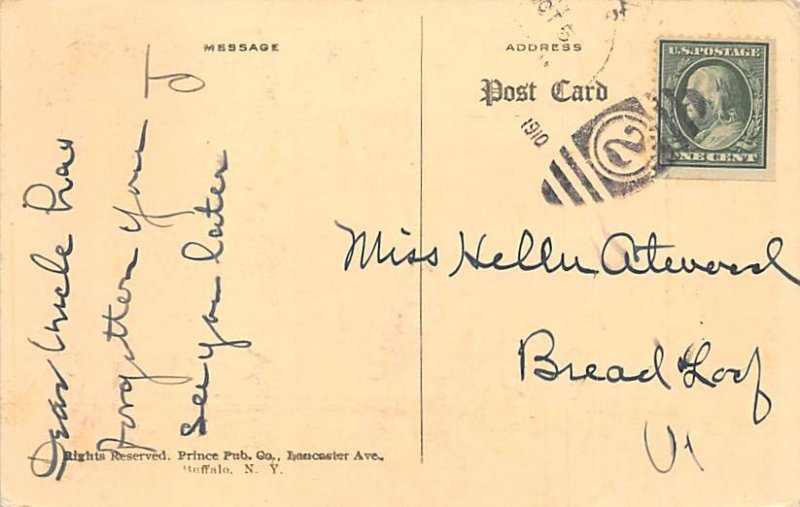 MESSAGE
Dear Uncle has
forgotten you I
See you later
Rights Reserved. Prince Pub. Co., Lancaster Ave.,
Buffalo, N. Y.
ADDRESS
Post Card
OCT
1910
2
U.S. POSTAGE
ONE CENT
Miss Atwood
Bread Loaf
Vt